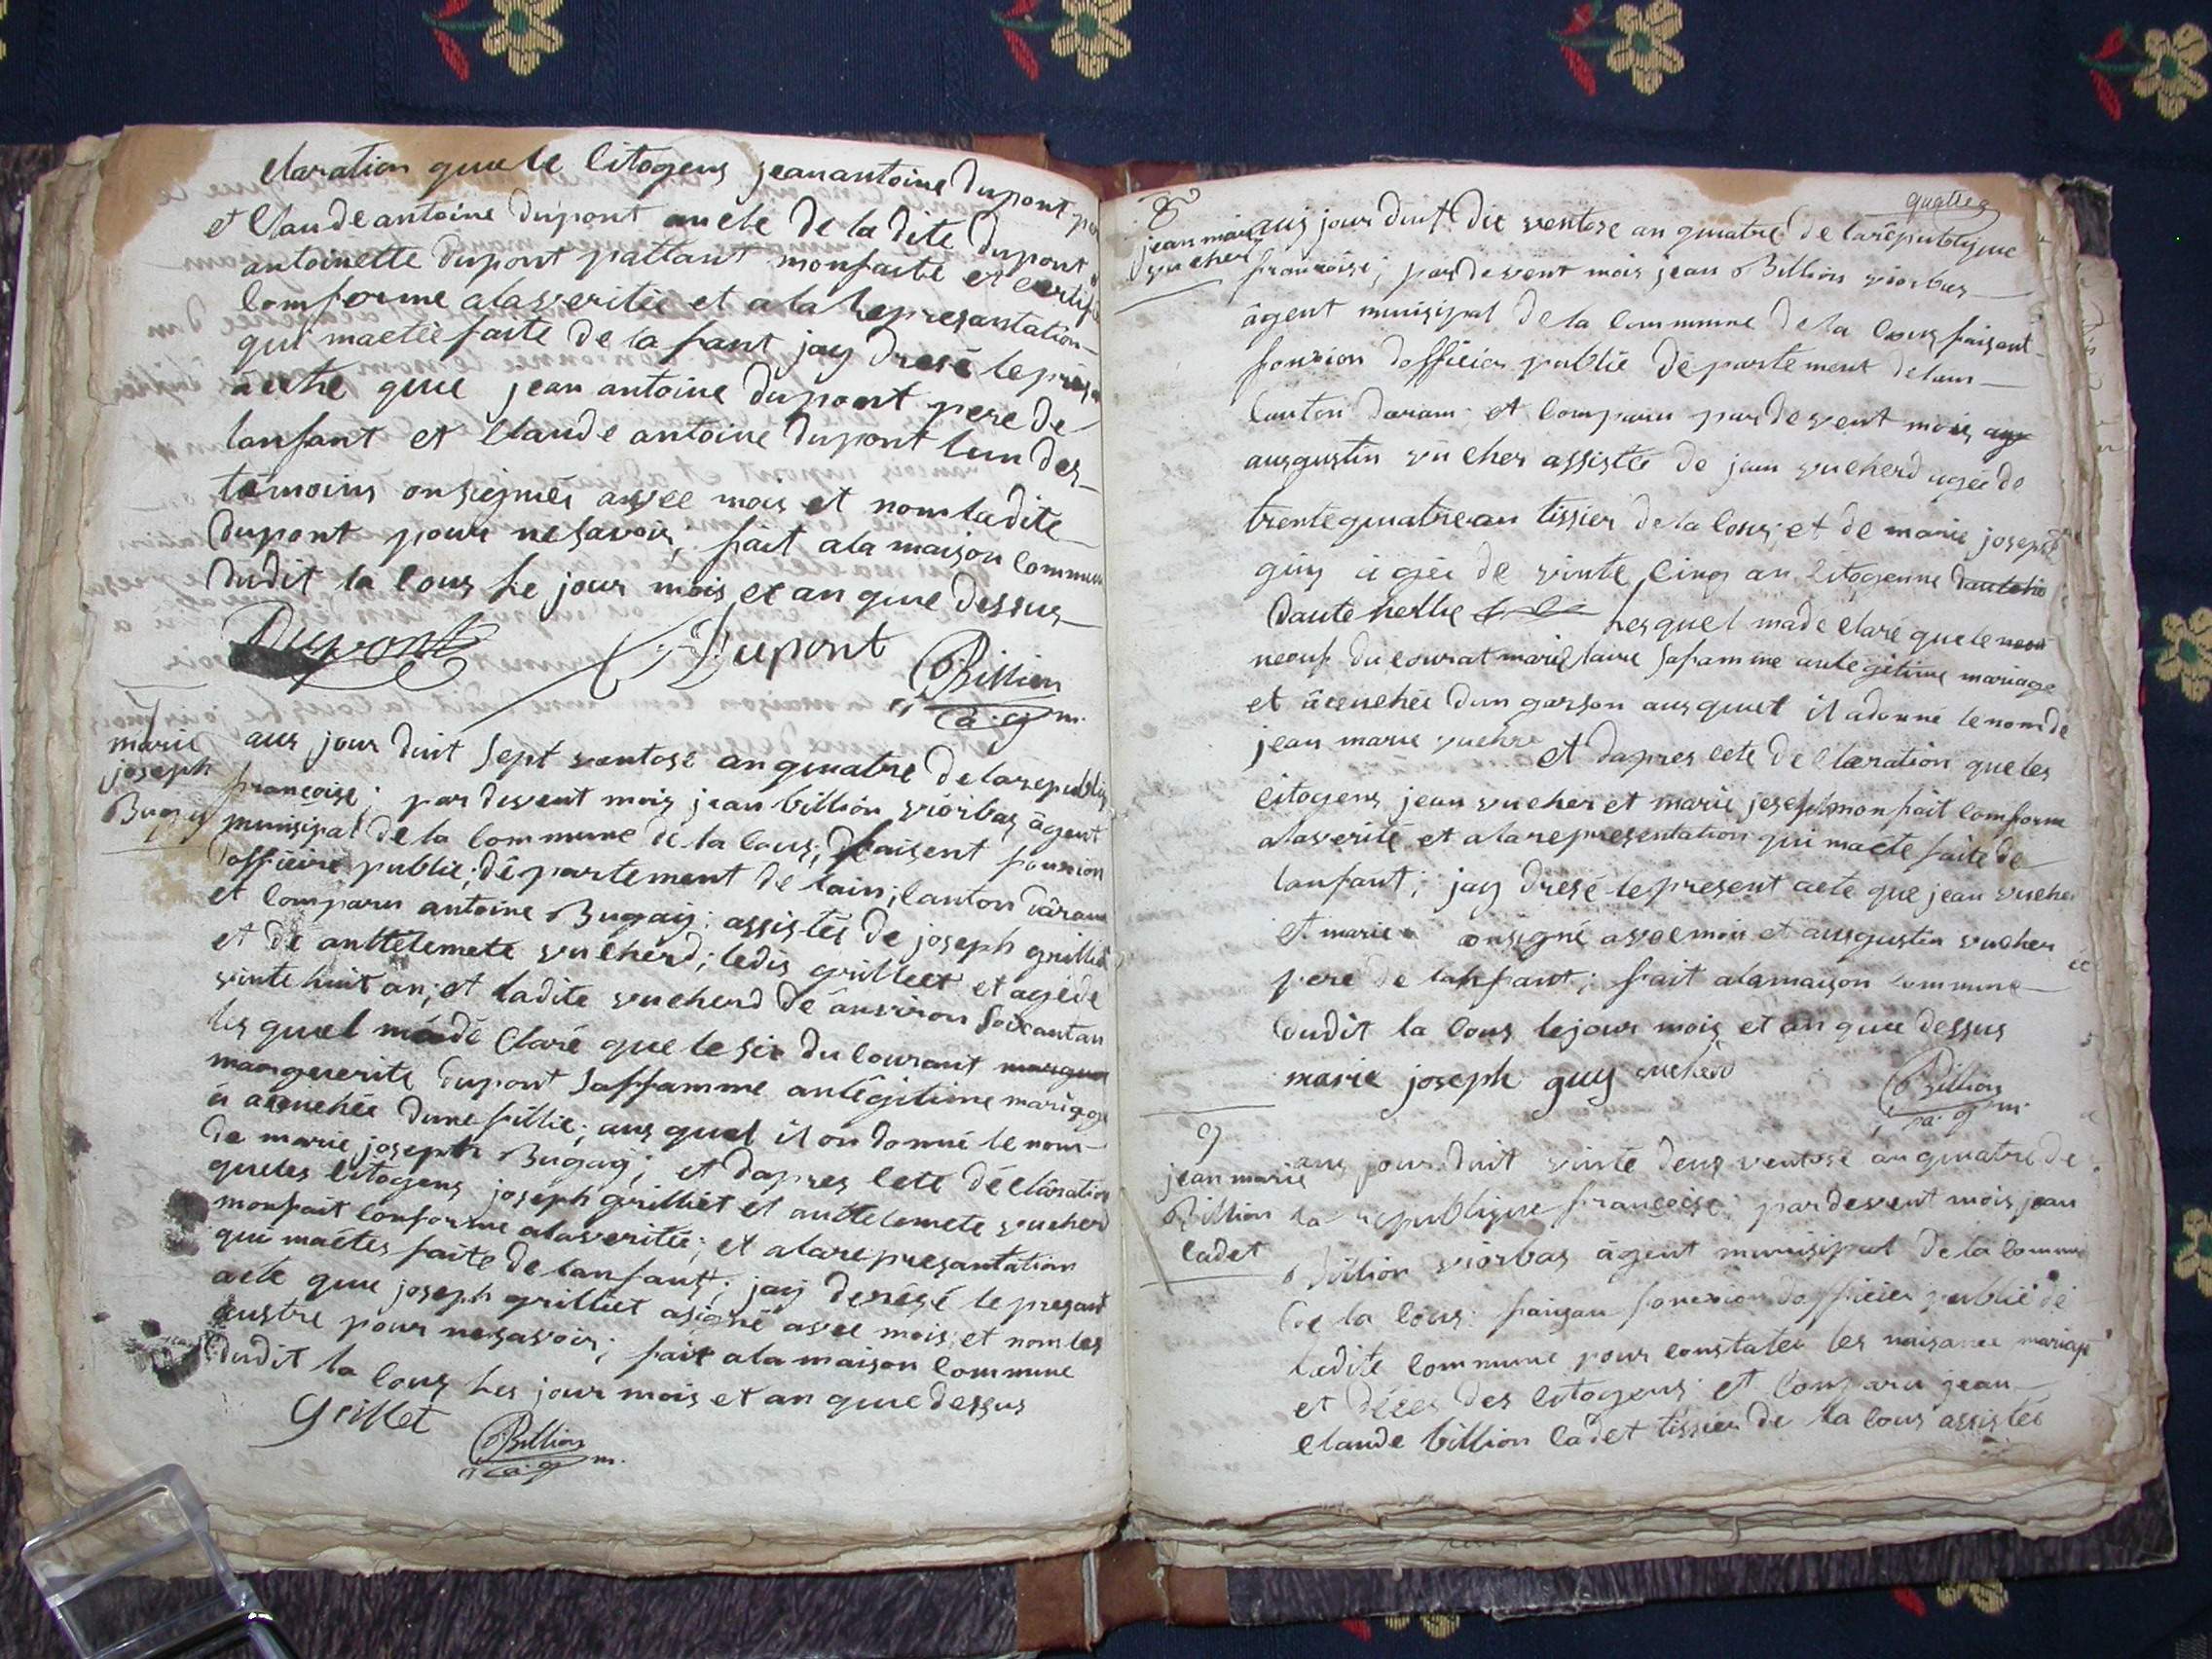 claration que le Citogens jean antoine dupont
et Claude antoine dupont oncle de la dite dupont
antoinette dupont monfaite et certif
Comforme alaveritée et a la Represantation
qui maetée faite de la fant jay Dresé le
aethe que jean antoine dupont pere de
lanfant et Claude antoine dupont lun des
témoins onsignés avee mois et nom ladite
dupont pour nesavoir, fait ala maison Commun
dudit la Cous le jour mois et an que dessus
Dupont Dupont
Billion
a.g m.
7
marie
joseph
Bugay
aus jour duit sept ventose an quatre de larepubliq
francoise; par devent mois jean billion viorbas âgent
munisipal de la Commune de la Cous, faisent fonxion
dofficier publie; département de lain; Canton dâram
et Comparu antoine Bugay; assistés de joseph grilliet
et de anttelemete vucherd; ledis grilliet et agéde
vinte huit an; et ladite vucherd de anviron soixantan
les quel madé Claré que le sis du Courant margue
marguerite dupont saffamme anlégitime mariage
a acuchée dune fillie; aus quel il on donné le nom
de marie joseph Bugay; et dapres Cete déclaration
queles Citogens joseph grilliet et anttelemete vucherd
monfait Conforme alaveritée; et alarepresantation
qui maetés faite de lanfant; jay dresé le presant
acte que joseph grilliet asigné avee mois; et nom les
austre pour nesavoir; fait ala maison Commune
dudit la Cous les jour mois et an que dessus
Grillet
Billion
a.g m.
quattre
8
jean marie
vucher
aus jour duit dix ventose an quatre de larépublyque
francoise; par devent mois jean Billion viorbas
âgent munisipal de la Commune de la Cous faisent
fonxion dofficier publie département delain
Canton daram et Comparu par devent mois aug
ausgustin vucher assistés de jean vucherd agée de
trente quatre an tissier de la Cous; et de marie joseph
guy agée de vinte Cinq an Citogenne
dautehelle lesquel madeclaré que le
neouf du Courat marie Claire safamme anlegitime mariage
et âccuchée dun garson aus quel il adonné le nom de
jean marie vucher et dapres cete declaration queles
Citogens jean vucher et marie joseph monfait Comforme
alaverité et alarepresentation qui maeté faite de
lanfant; jay dresé lepresent acte que jean vucher
et marie onsigné aveemois et ausgustin vucher
pere de lanfant; fait alamaison commune
dudit la Cous lejour mois et an que dessus
marie joseph guy vucherd
Billion
a.g m.
9
jean marie
Billion
Cadet
aus jour duit vinte deus ventose an quatre de
la republique francoise par devent mois jean
billion viorbas âgent munisipal de la Commu
de la Cous faisan fonxion dofficier publié de
ladite Commune pour constater les naisance mariage
et déces des Citogens et Comparu jean
Claude billion Cadet tissier de la Cous assistés